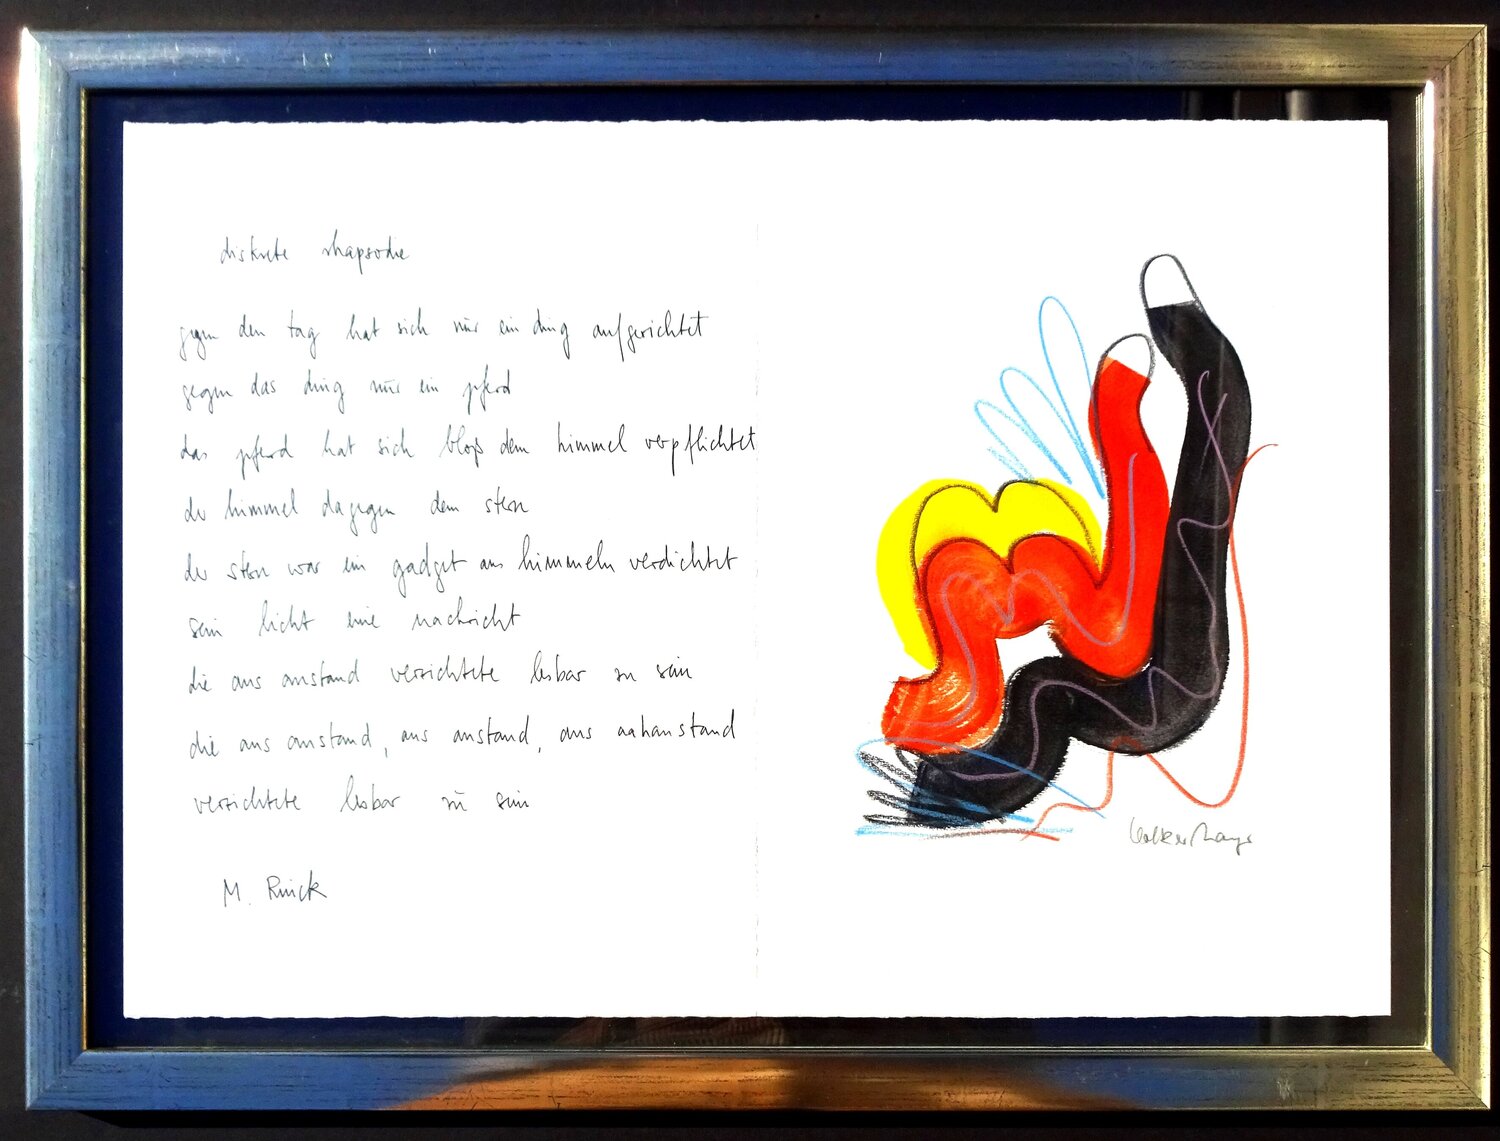 diskrete rhapsodie
gegen den tag hat sich nur ein ding aufgerichtet
gegen das ding nur ein pferd
das pferd hat sich bloß dem himmel verpflichtet
der himmel dagegen dem stern
der stern war ein gadget aus himmeln verdichtet
sein licht eine nachricht
die aus anstand verzichtete lesbar zu sein
die aus anstand, aus anstand, aus aahanstand
verzichtete lesbar zu sein
M. Rinck